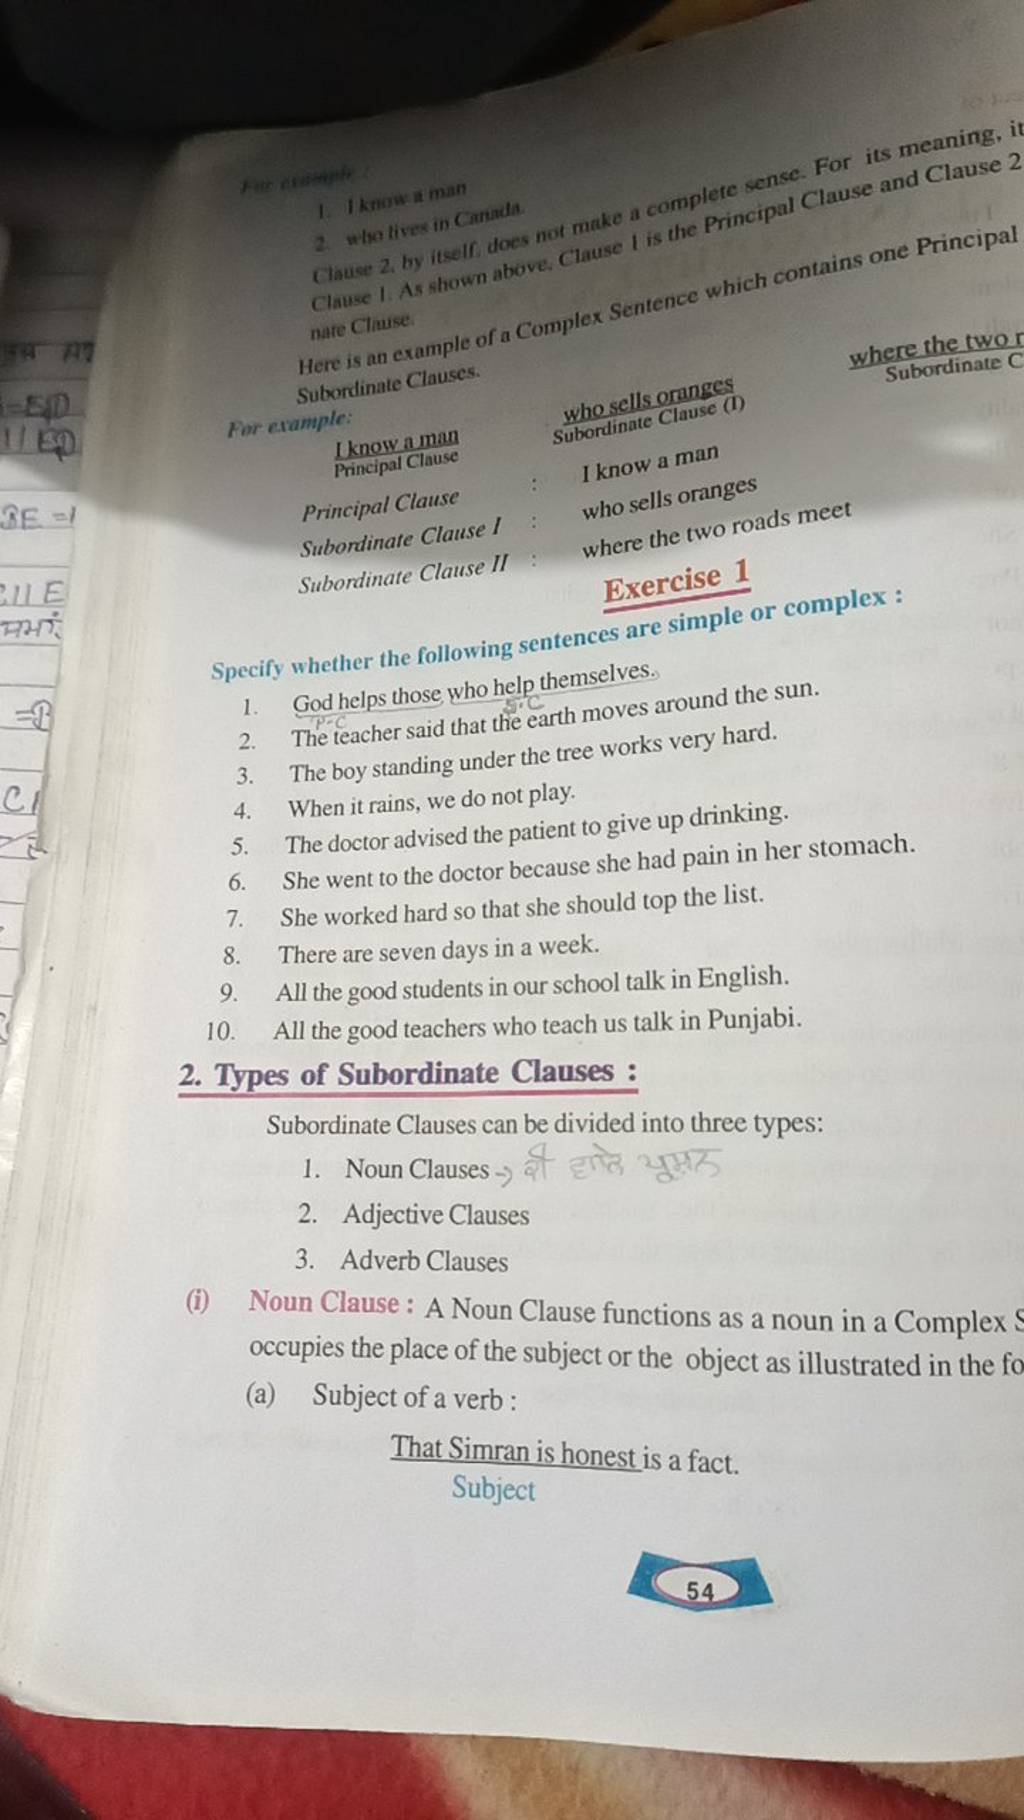 For example :
1. I know a man
2. who lives in Canada.
Clause 2, by itself, does not make a complete sense. For its meaning, it
Clause 1. As shown above, Clause 1 is the Principal Clause and Clause 2
nate Clause.
Here is an example of a Complex Sentence which contains one Principal
Subordinate Clauses.
For example:
I know a man who sells oranges where the two r
Principal Clause Subordinate Clause (I) Subordinate C
Principal Clause : I know a man
Subordinate Clause I : who sells oranges
Subordinate Clause II : where the two roads meet
Exercise 1
Specify whether the following sentences are simple or complex :
1. God helps those who help themselves.
P-C S.C
2. The teacher said that the earth moves around the sun.
3. The boy standing under the tree works very hard.
4. When it rains, we do not play.
5. The doctor advised the patient to give up drinking.
6. She went to the doctor because she had pain in her stomach.
7. She worked hard so that she should top the list.
8. There are seven days in a week.
9. All the good students in our school talk in English.
10. All the good teachers who teach us talk in Punjabi.
2. Types of Subordinate Clauses :
Subordinate Clauses can be divided into three types:
1. Noun Clauses → ਕੀ ਵਾਲੇ ਪ੍ਰਸ਼ਨ
2. Adjective Clauses
3. Adverb Clauses
(i) Noun Clause : A Noun Clause functions as a noun in a Complex S
occupies the place of the subject or the object as illustrated in the fo
(a) Subject of a verb :
That Simran is honest is a fact.
Subject
54